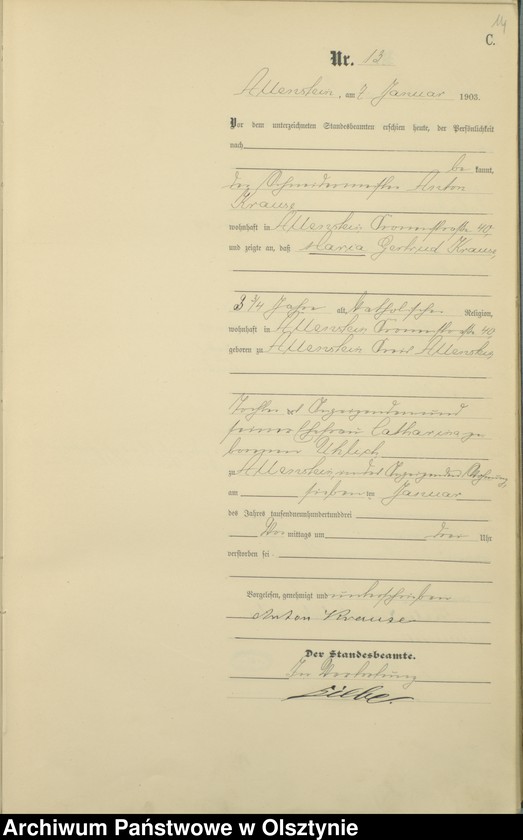 14
C.
Nr. 13
Allenstein, am 7 Januar 1903.
Vor dem unterzeichneten Standesbeamten erschien heute, der Persönlichkeit
nach
be kannt,
der Schneidermeister Anton
Krause
wohnhaft in Allenstein, Kronenstraße 40,
und zeigte an, daß Maria Gertrud Krause,
3 3/4 Jahre alt, katholischer Religion,
wohnhaft in Allenstein Kronenstraße 40,
geboren zu Allenstein, Kreis Allenstein,
Tochter des Anzeigenden und
seiner Ehefrau Catharina ge
borenen Uhlich
zu Allenstein, in des Anzeigenden Wohnung
am sieben ten Januar
des Jahres tausendneunhundertunddrei
Vor mittags um drei Uhr
verstorben sei.
Vorgelesen, genehmigt und unterschrieben
Anton Krause
Der Standesbeamte.
In Vertretung
Archiwum Państwowe w Olsztynie